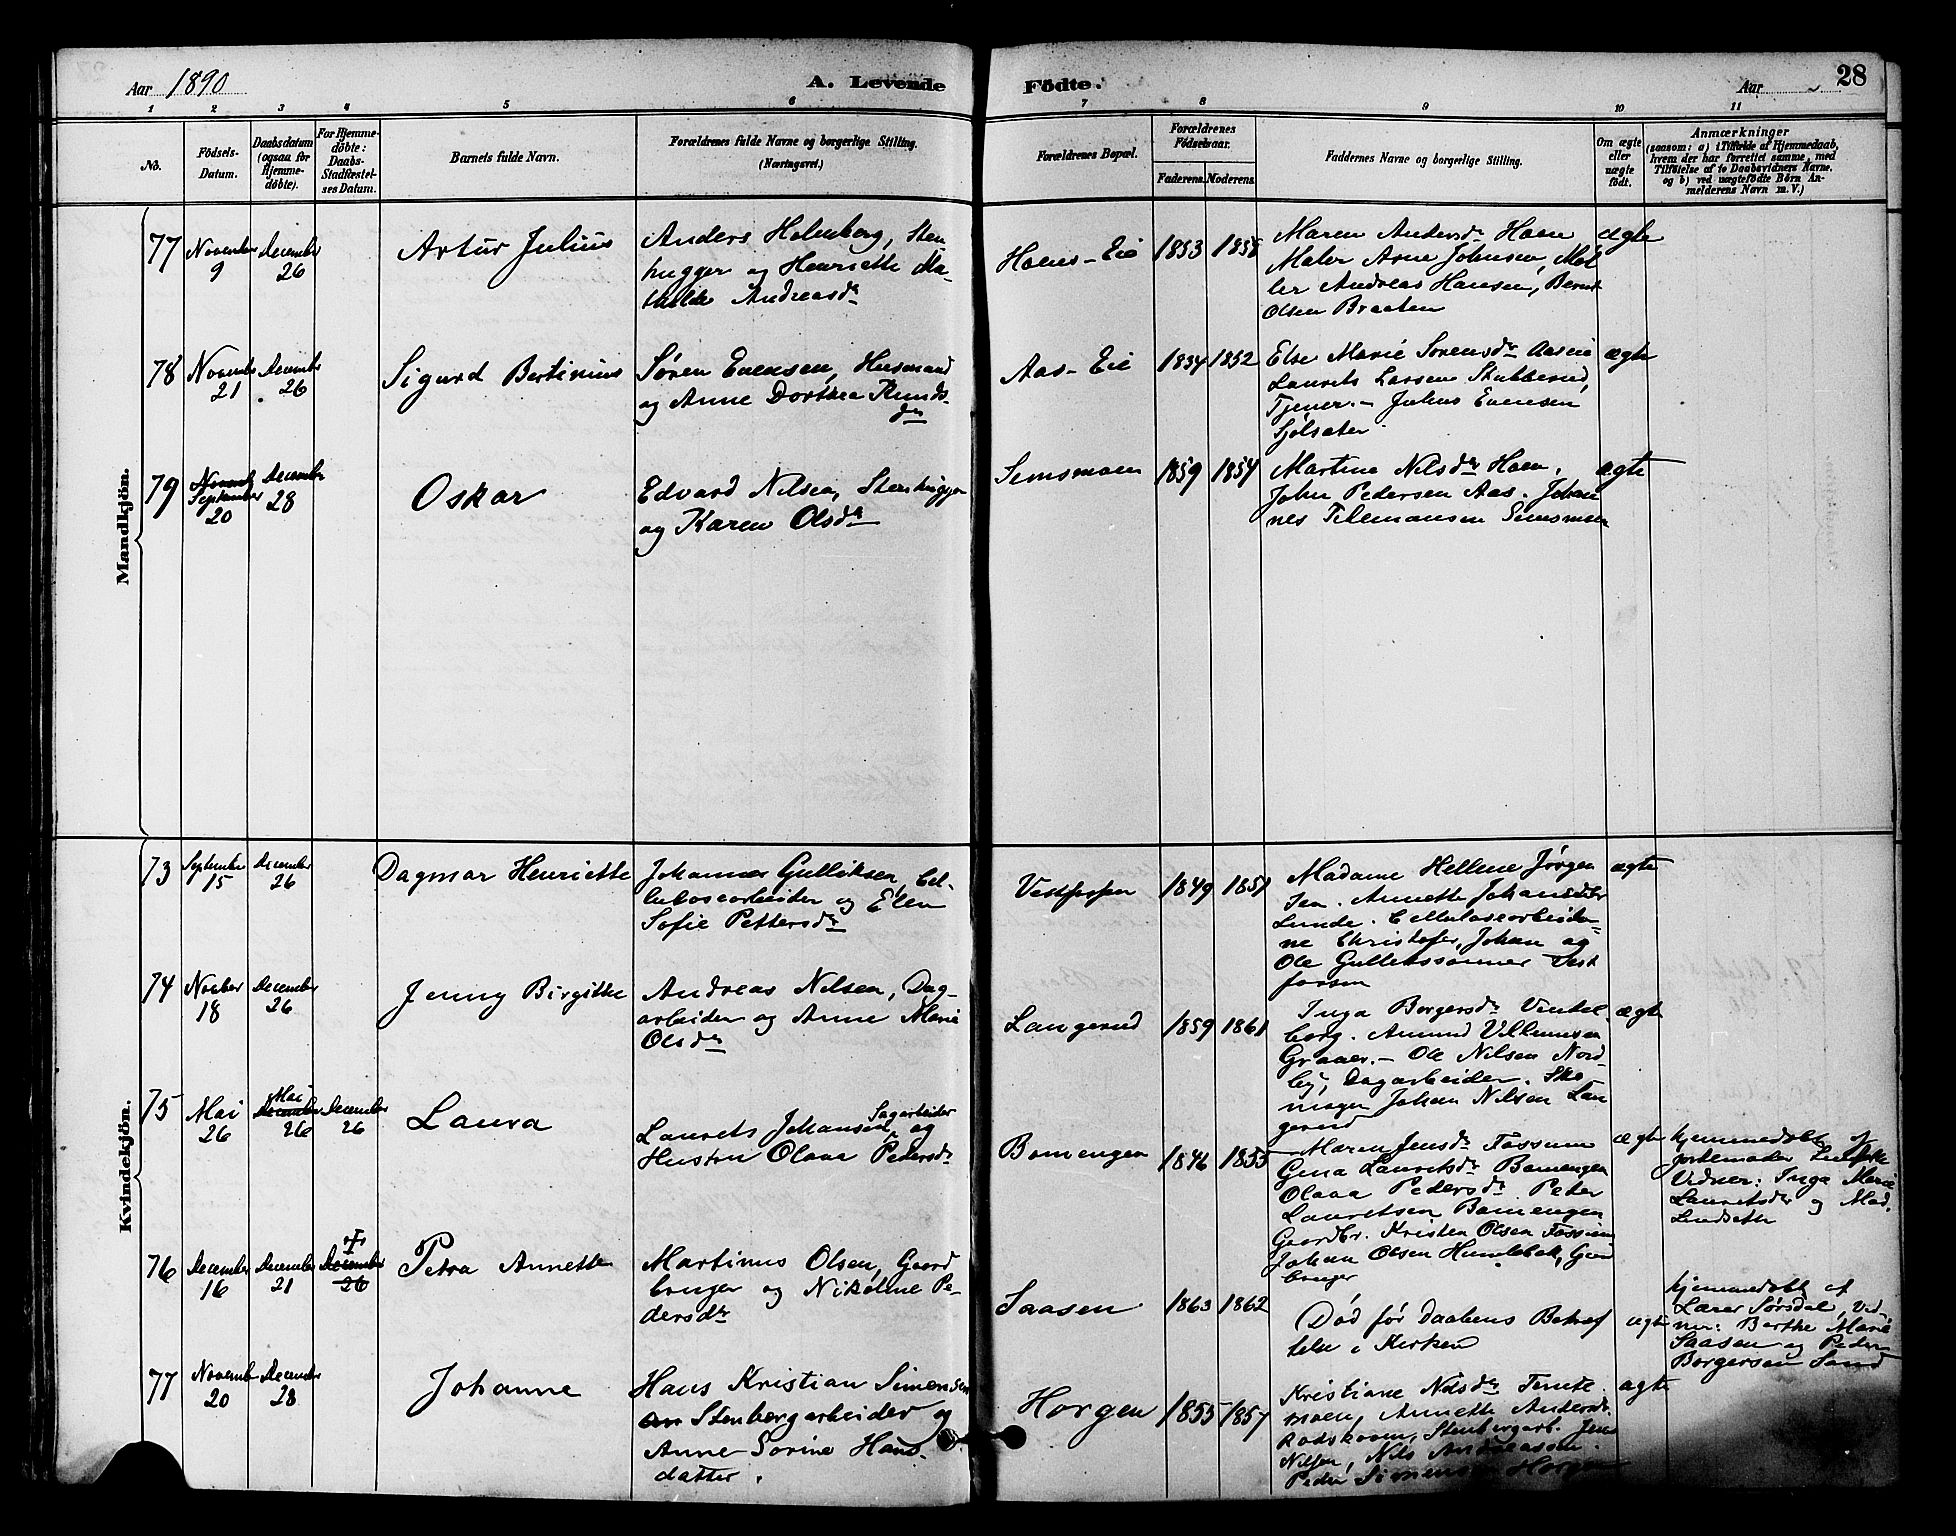 Aar 1890
A. Levende
Födte.
Aar
28
1 2 3 4 5 6 7 8 9 10 11
No.
Födsels-
Datum.
Daabsdatum
(ogsaa for
Hjemme-
döbte).
For Hjemme-
döbte:
Daabs-
Stadfæstel-
ses Datum.
Barnets fulde Navn.
Forældrenes fulde Navne og borgerlige Stilling.
(Næringsvei.)
Forældrenes Bopæl.
Forældrenes
Födselsaar.
Faderens. Moderens.
Faddernes Navne og borgerlige Stilling.
Om ægte
eller
uægte
födt.
Anmærkninger
(saasom: a) i Tilfælde af Hjemmedaab,
hvem der har forrettet samme, med
Tilföielse af to Daabsvidners Navne.
og b) ved uægtefödte Börn An-
melderens Navn m. V.)
Mandkjön.
77
November
9
December
26
Artur Julius
Anders Holmberg, Sten
hugger og Henriette Ma-
thilde Andreasdr
Hoens-Eie
1853 1858
Maren Andersdr Hoen
Maler Arne Johnsen, Møl
ler Andreas Hansen, Bernt
Olsen Braaten
ægte
78
Novembr
21
December
26
Sigurd Bertinius
Søren Evensen, Husmand
og Anne Dorthea Knuds-
dr
Aas-Eie
1854 1852
Else Marie Sørensdr Aaseie
Laurits Larsen Stubberud,
Tjener. – Julius Evensen
Sjølsæter
ægte
79
September
20
December
28
Oskar
Edvard Nilsen, Stenhugger
og Karen Olsdr
Semsmoen
1859 1854
Martine Nilsdr Hoen,
John Pedersen Aas. Johan
nes Tilemansen Semsmoen
ægte
Kvindekjön.
73
September
15
December
26
Dagmar Henriette
Johannes Gulliksen, Cel-
lulosearbeider og Elen
Sofie Pettersdr
Vestfossen
1849 1851
Madame Hellene Jørgen
sen. Annette Johansdr
Lunde. Cellulosearbeider-
ne Christofer, Johan og
Ole Gullikssønner Vest
fossen
ægte
74
November
18
December
26
Jenny Birgitte
Andreas Nilsen, Dag-
arbeider og Anne Marie
Olsdr
Langerud
1859 1861
Inga Borgersdr Vintel
borg. Amund Villumsen
Graaer. – Ole Nilsen Nord
by, Dagarbeider. Sko-
mager Johan Nilsen Lan
gerud
ægte
75
Mai
26
Mai
December
26
December
26
Laura
Laurits Johansen, Sagarbeider og
Hustru Olava Pedersdr
Bomengen
1846 1855
Maren Jensdr Fossum
Gina Lauritsdr Bomengen
Olava Pedersdr. Peter
Lauritsen Bomengen
Gaardbr. Kristen Olsen Fossum
Johan Olsen Humlebek, Gaard
bruger
ægte
hjemmedøbt af
Jordemoder Lindseth
Vidner: Inga Marie
Lauritsdr og Mad.
Lindseth
76
December
16
December
21
†
December
26
Petra Annette
Martinus Olsen, Gaard
bruger og Nikoline Pe-
dersdr
Saasen
1863 1862
Død før Daabens Bekræf
telse i Kirken
ægte
hjemmedøbt af
Lærer Sørsdal, Vid-
ner: Berthe Marie
Saasen og Peder
Borgersen Sand
77
November
20
December
28
Johanne
Hans Kristian Simensen
Stenbergarbeider og
Anne Sorine Hans
datter.
Horgen
1855 1857
Kristiane Nilsdr Temte
moen, Annette Andersdr
Kodskoven, Stenbergarb. Jens
Nilsen, Nils Andreassen.
Peder Simensen Horgen
ægte